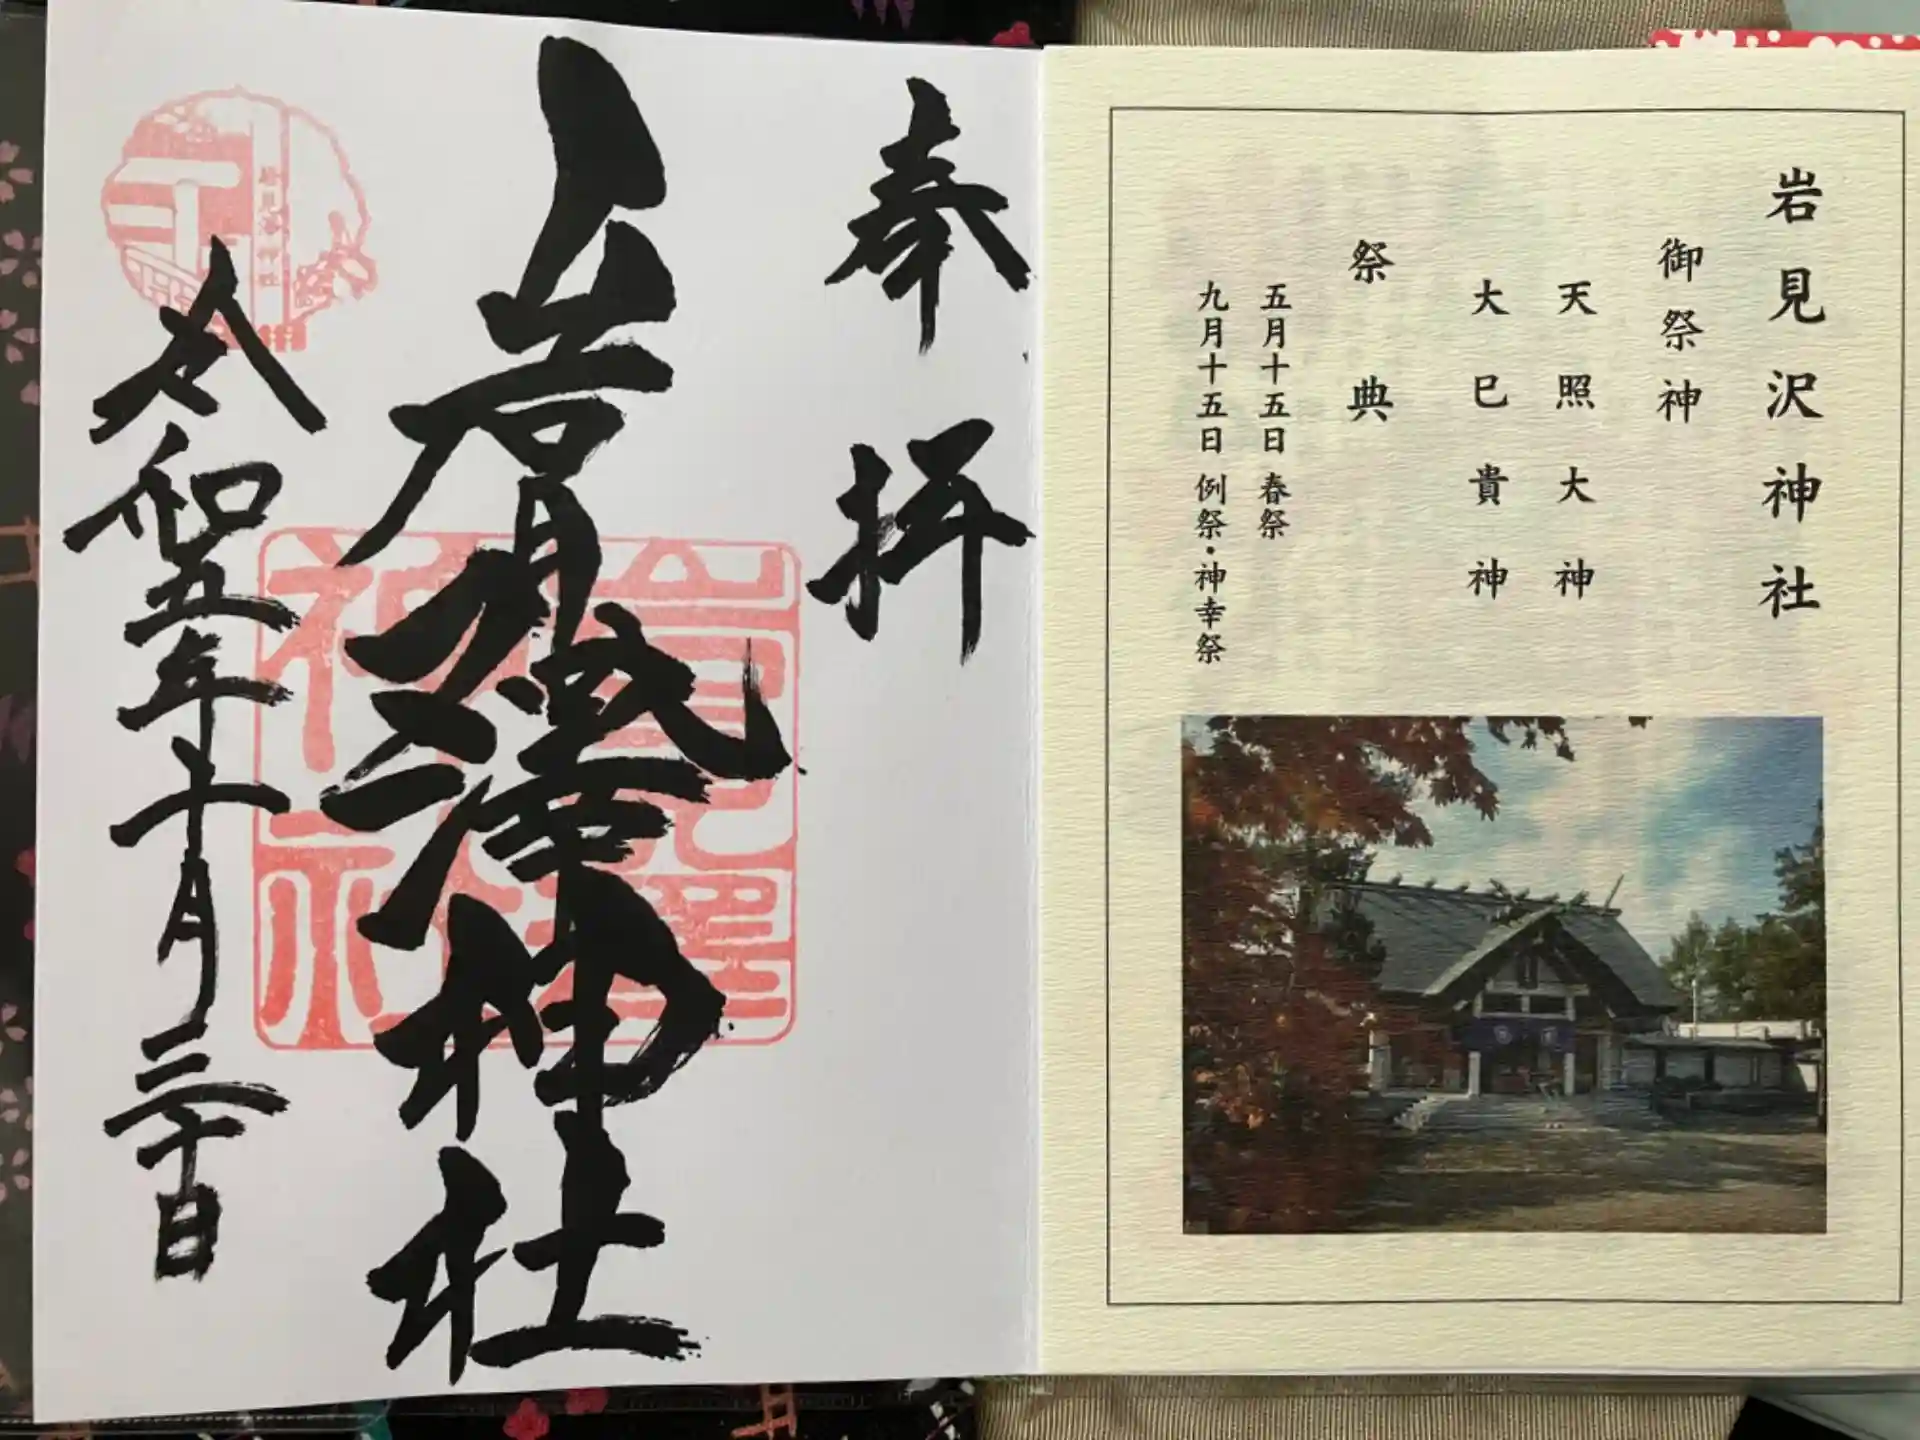 岩見沢神社
御祭神
天照大神
大巳貴神
祭典
五月十五日 春祭
九月十五日 例祭・神幸祭
奉拝
岩見澤神社
令和五年十月三十日
岩見澤神社
岩見澤神社